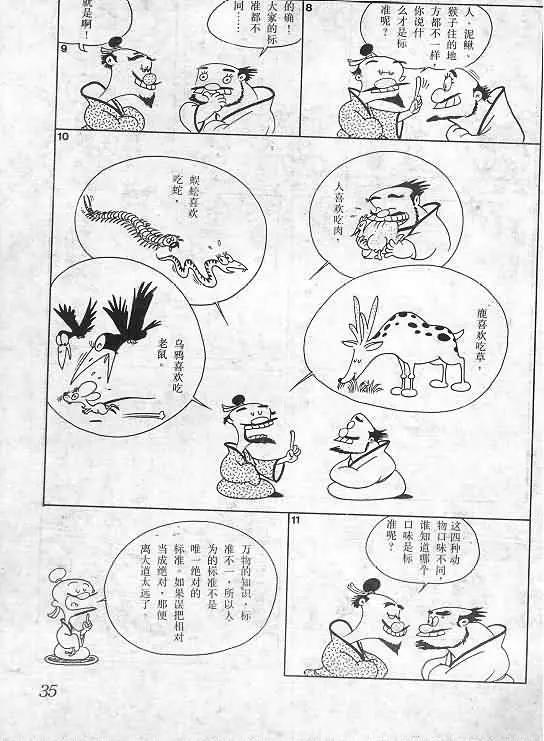 8
人、泥鳅、
猴子住的地
方都不一样，
你说什
么才是标
准呢？
9
的确！
大家的标
准都不
同……
就是啊！
10
人喜欢吃肉，
鹿喜欢吃草，
蜈蚣喜欢
吃蛇，
乌鸦喜欢吃
老鼠。
11
这四种动
物口味不同，
谁知道哪个
口味是标
准呢？
万物的知识，标
准不一，所以人
为的标准不是
唯一绝对的
标准。如果误把相对
当成绝对，那便
离大道太远了。
35